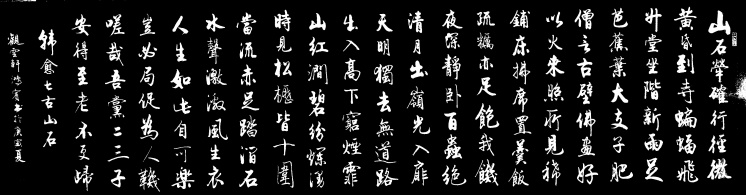 山石犖确行徑微
黃昏到寺蝙蝠飛
升堂坐階新雨足
芭蕉葉大支子肥
僧言古壁佛畫好
以火來照所見稀
鋪床拂席置羹飯
疏糲亦足飽我饑
夜深靜臥百蟲絕
清月出嶺光入扉
天明獨去無道路
出入高下窮煙霏
山紅澗碧紛爛漫
時見松櫪皆十圍
當流赤足踏澗石
水聲激激風生衣
人生如此自可樂
豈必局促為人鞿
嗟哉吾黨二三子
安得至老不更歸
韓愈七古山石
觀雲軒鴻